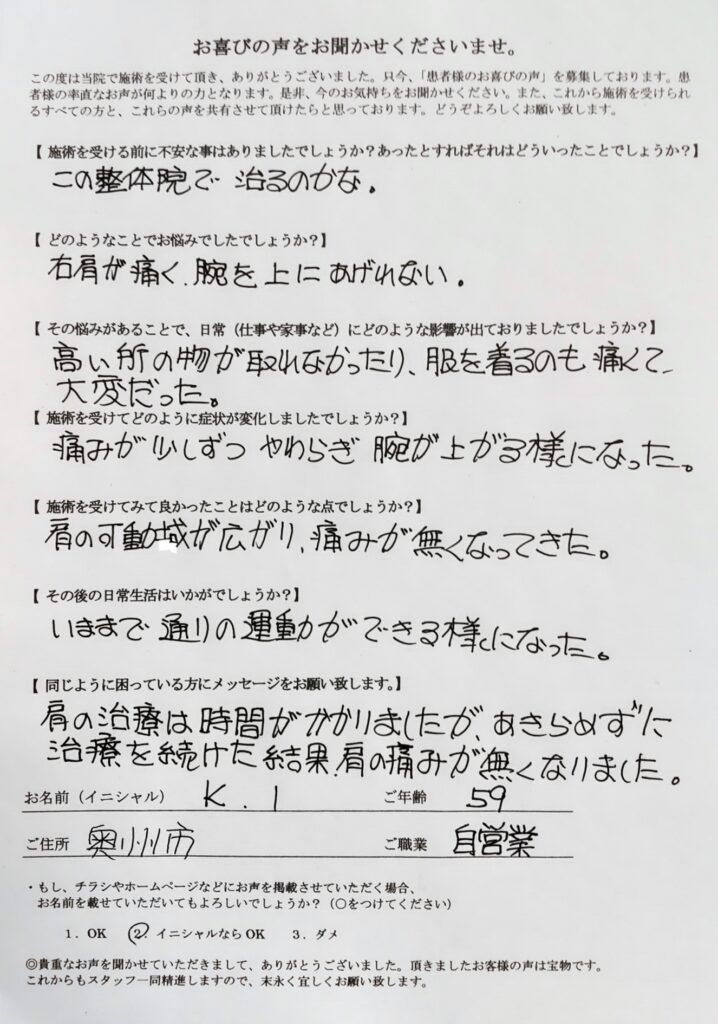 お喜びの声をお聞かせくださいませ。
この度は当院で施術を受けて頂き、ありがとうございました。只今、「患者様のお喜びの声」を募集しております。患
者様の率直なお声が何よりの力となります。是非、今のお気持ちをお聞かせください。また、これから施術を受けられ
るすべての方と、これらの声を共有させて頂けたらと思っております。どうぞよろしくお願い致します。
【 施術を受ける前に不安な事はありましたでしょうか？あったとすればそれはどういったことでしょうか？】
この整体院で治るのかな。
【 どのようなことでお悩みでしたでしょうか？】
右肩が痛く、腕を上にあげれない。
【 その悩みがあることで、日常（仕事や家事など）にどのような影響が出ておりましたでしょうか？】
高い所の物が取れなかったり、服を着るのも痛くて、
大変だった。
【 施術を受けてどのように症状が変化しましたでしょうか？】
痛みが少しずつやわらぎ腕が上がる様になった。
【 施術を受けてみて良かったことはどのような点でしょうか？】
肩の可動域が広がり、痛みが無くなってきた。
【 その後の日常生活はいかがでしょうか？】
いままで通りの運動ができる様になった。
【 同じように困っている方にメッセージをお願い致します。】
肩の治療は時間がかかりましたが、あきらめずに
治療を続けた結果、肩の痛みが無くなりました。
お名前（イニシャル） K.I ご年齢 59
ご住所 奥州市 ご職業 自営業
・もし、チラシやホームページなどにお声を掲載させていただく場合、
お名前を載せていただいてもよろしいでしょうか？（〇をつけてください）
１．OK ②．イニシャルなら OK ３．ダメ
◎貴重なお声を聞かせていただきまして、ありがとうございました。頂きましたお客様の声は宝物です。
これからもスタッフ一同精進しますので、末永く宜しくお願い致します。